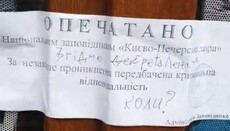 ОПЕЧАТАНО
Національним заповідником «Києво-Печерська лавра»
Згідно
За незаконне проникнення передбачена кримінальна
відповідальність
КОЛИ?
Адміністрація Заповідника